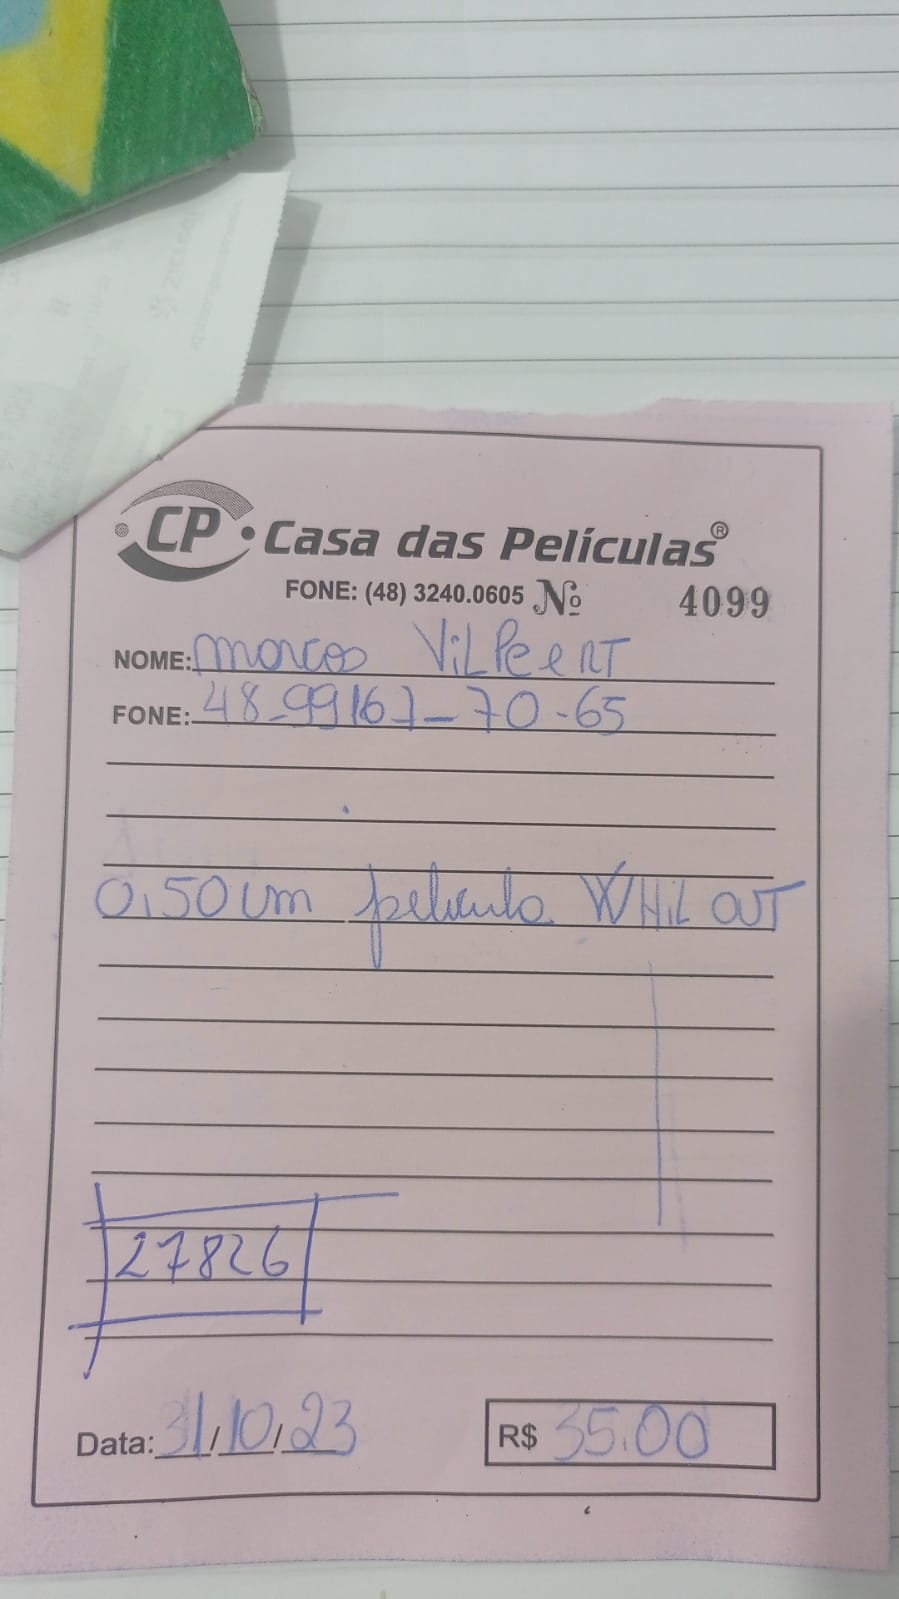 CP Casa das Películas®
FONE: (48) 3240.0605 Nº 4099
NOME: Marcos VilPeeRT
FONE: 48-99167-70-65
0,50 cm película WHiL OUT
27826
Data: 31/10/23 R$ 35.00